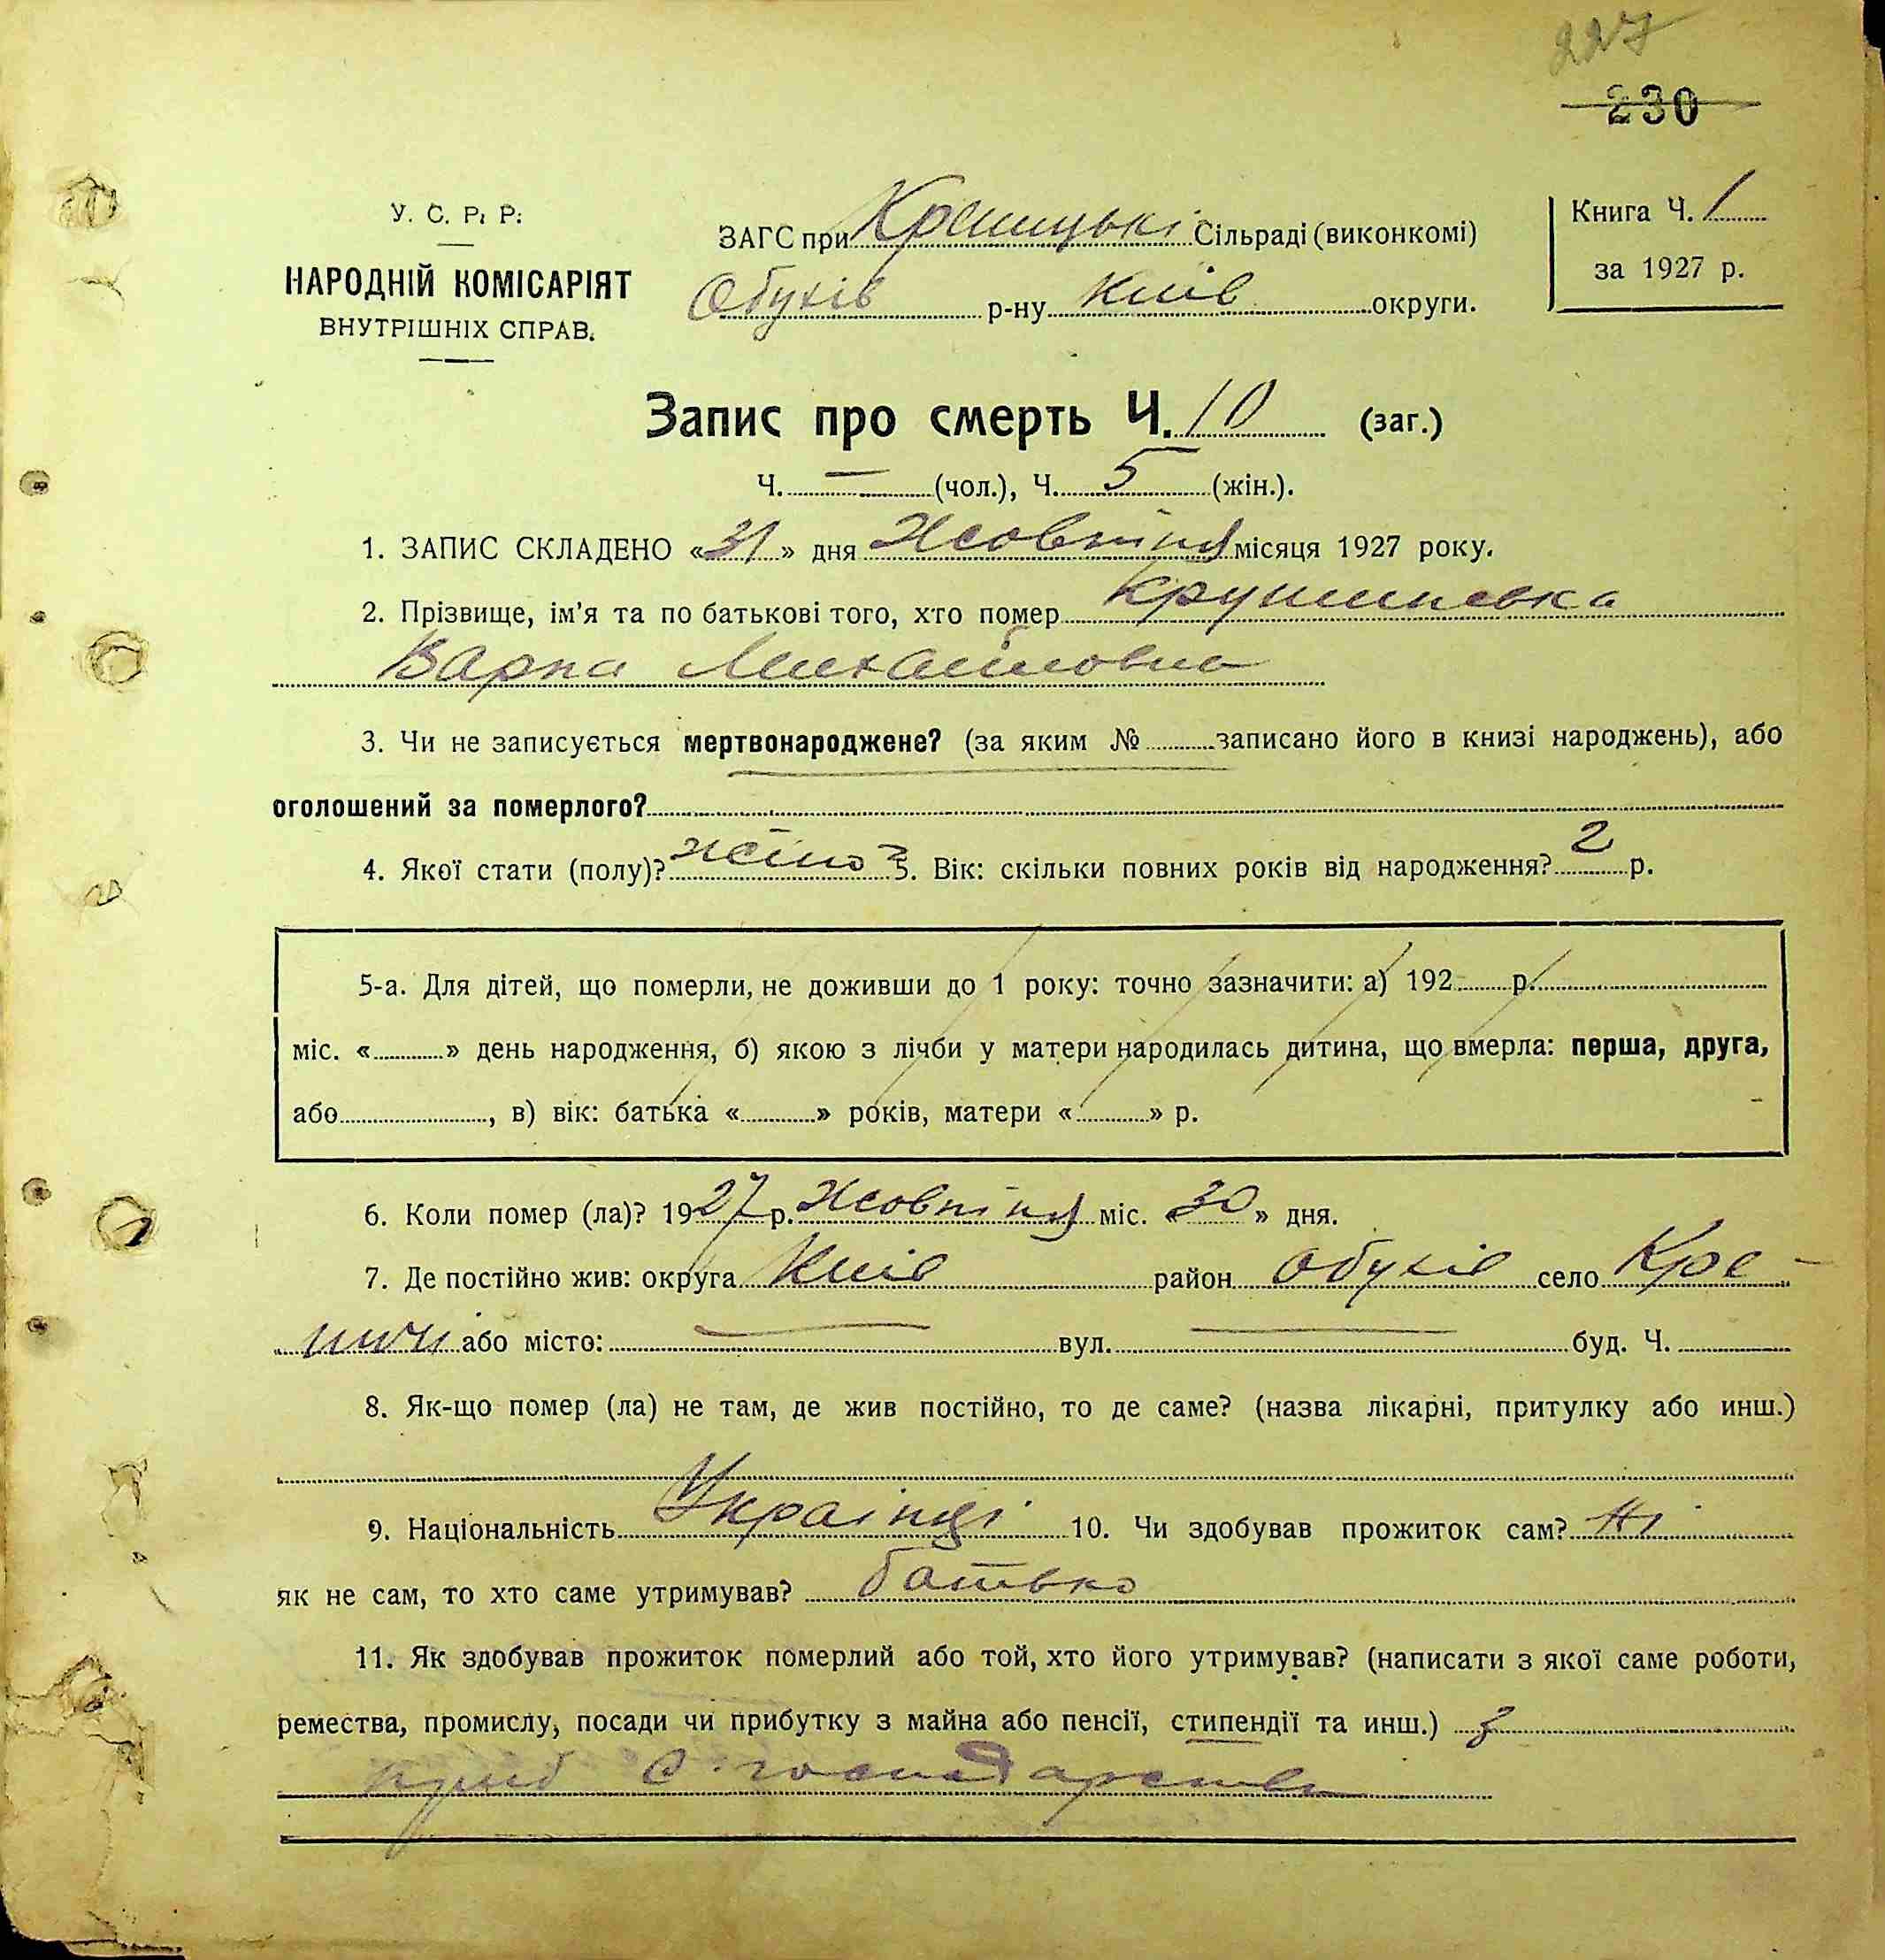 227
230
У. С. Р. Р.
НАРОДНІЙ КОМІСАРІЯТ
ВНУТРІШНІХ СПРАВ.
ЗАГС при Креницькі Сільраді (виконкомі)
Обухів р-ну Київ округи.
Книга Ч. 1
за 1927 р.
Запис про смерть Ч. 10 (заг.)
Ч. — (чол.), Ч. 5 (жін.).
1. ЗАПИС СКЛАДЕНО «31» дня Жовтня місяця 1927 року.
2. Прізвище, ім'я та по батькові того, хто помер
Варка Михайловна
3. Чи не записується мертвонароджене? (за яким № записано його в книзі народжень), або
оголошений за померлого?
4. Якої стати (полу)? жіно 5. Вік: скільки повних років від народження? 2 р.
5-а. Для дітей, що померли, не доживши до 1 року: точно зазначити: а) 192 р.
міс. « » день народження, б) якою з лічби у матери народилась дитина, що вмерла: перша, друга,
або , в) вік: батька « » років, матери « » р.
6. Коли помер (ла)? 1927 р. Жовтня міс. «30» дня.
7. Де постійно жив: округа Київ район Обухів село Кре-
ничи або місто: — вул. — буд. Ч.
8. Як-що помер (ла) не там, де жив постійно, то де саме? (назва лікарні, притулку або инш.)
9. Національність Українці 10. Чи здобував прожиток сам? Ні
як не сам, то хто саме утримував? батько
11. Як здобував прожиток померлий або той, хто його утримував? (написати з якої саме роботи,
ремества, промислу, посади чи прибутку з майна або пенсії, стипендії та инш.) з
приб с. господарства